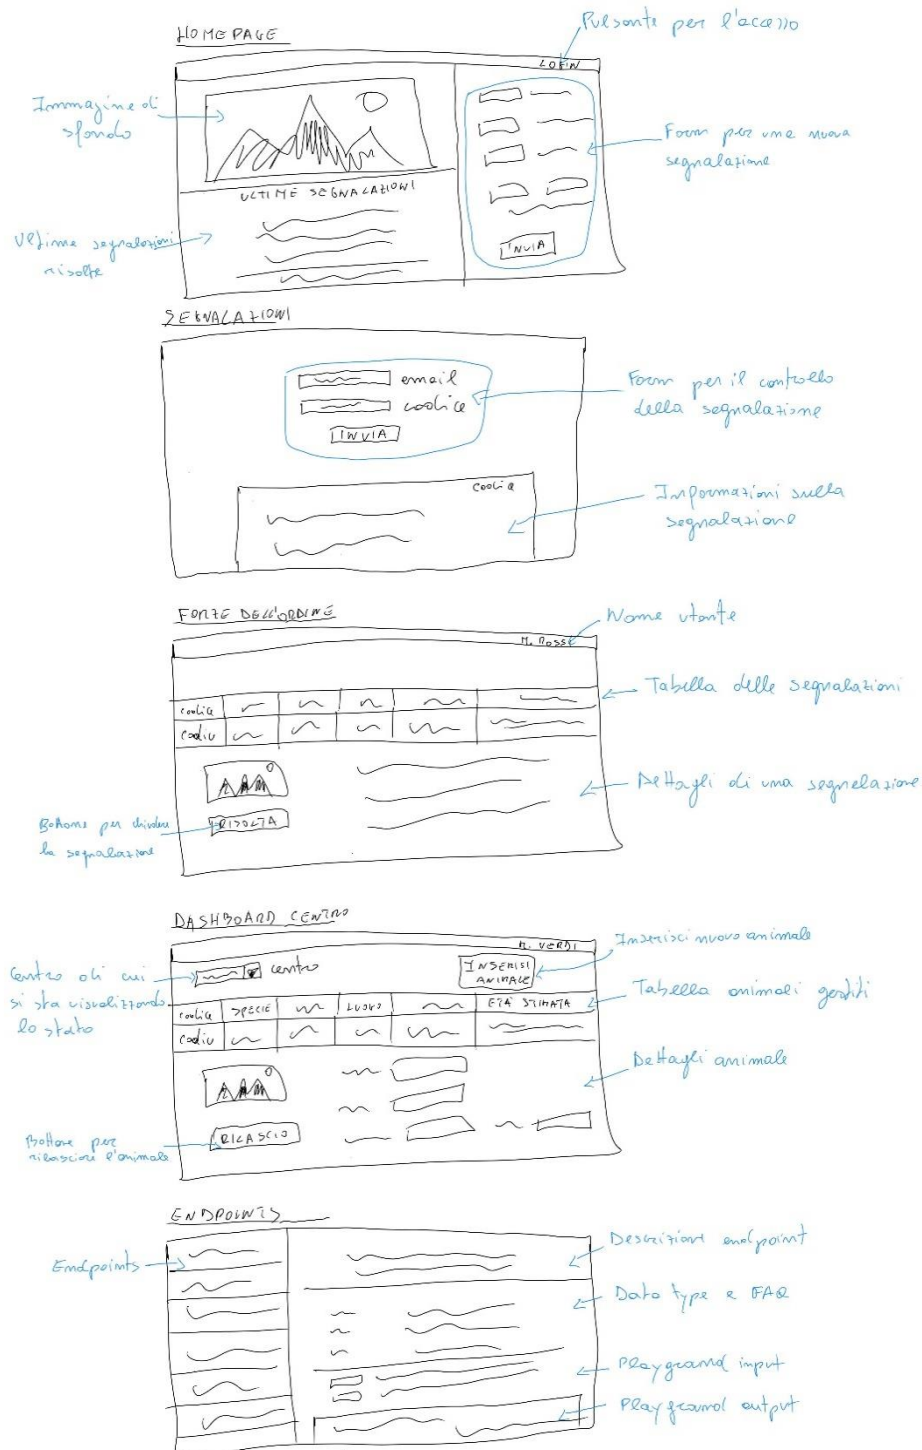 HOMEPAGE
Pulsante per l'accesso
LOGIN
Immagine di
sfondo
Form per una nuova
segnalazione
ULTIME SEGNALAZIONI
Ultime segnalazioni
risolte
INVIA
SEGNALAZIONI
email
codice
INVIA
Form per il controllo
della segnalazione
codice
Informazioni sulla
segnalazione
FORZE DELL'ORDINE
Nome utente
M. ROSSI
Tabella delle segnalazioni
codice
codice
Dettagli di una segnalazione
RISOLTA
Bottone per chiudere
la segnalazione
DASHBOARD CENTRO
M. VERDI
Inserisci nuovo animale
Centro di cui
si sta visualizzando
lo stato
centro
INSERISI
ANIMALE
Tabella animali gestiti
codice SPECIE LUOGO ETÀ STIMATA
codice
Dettagli animale
RILASCIO
Bottone per
rilasciare l'animale
ENDPOINTS
Endpoints
Descrizione endpoint
Data type e FAQ
Playground input
Playground output